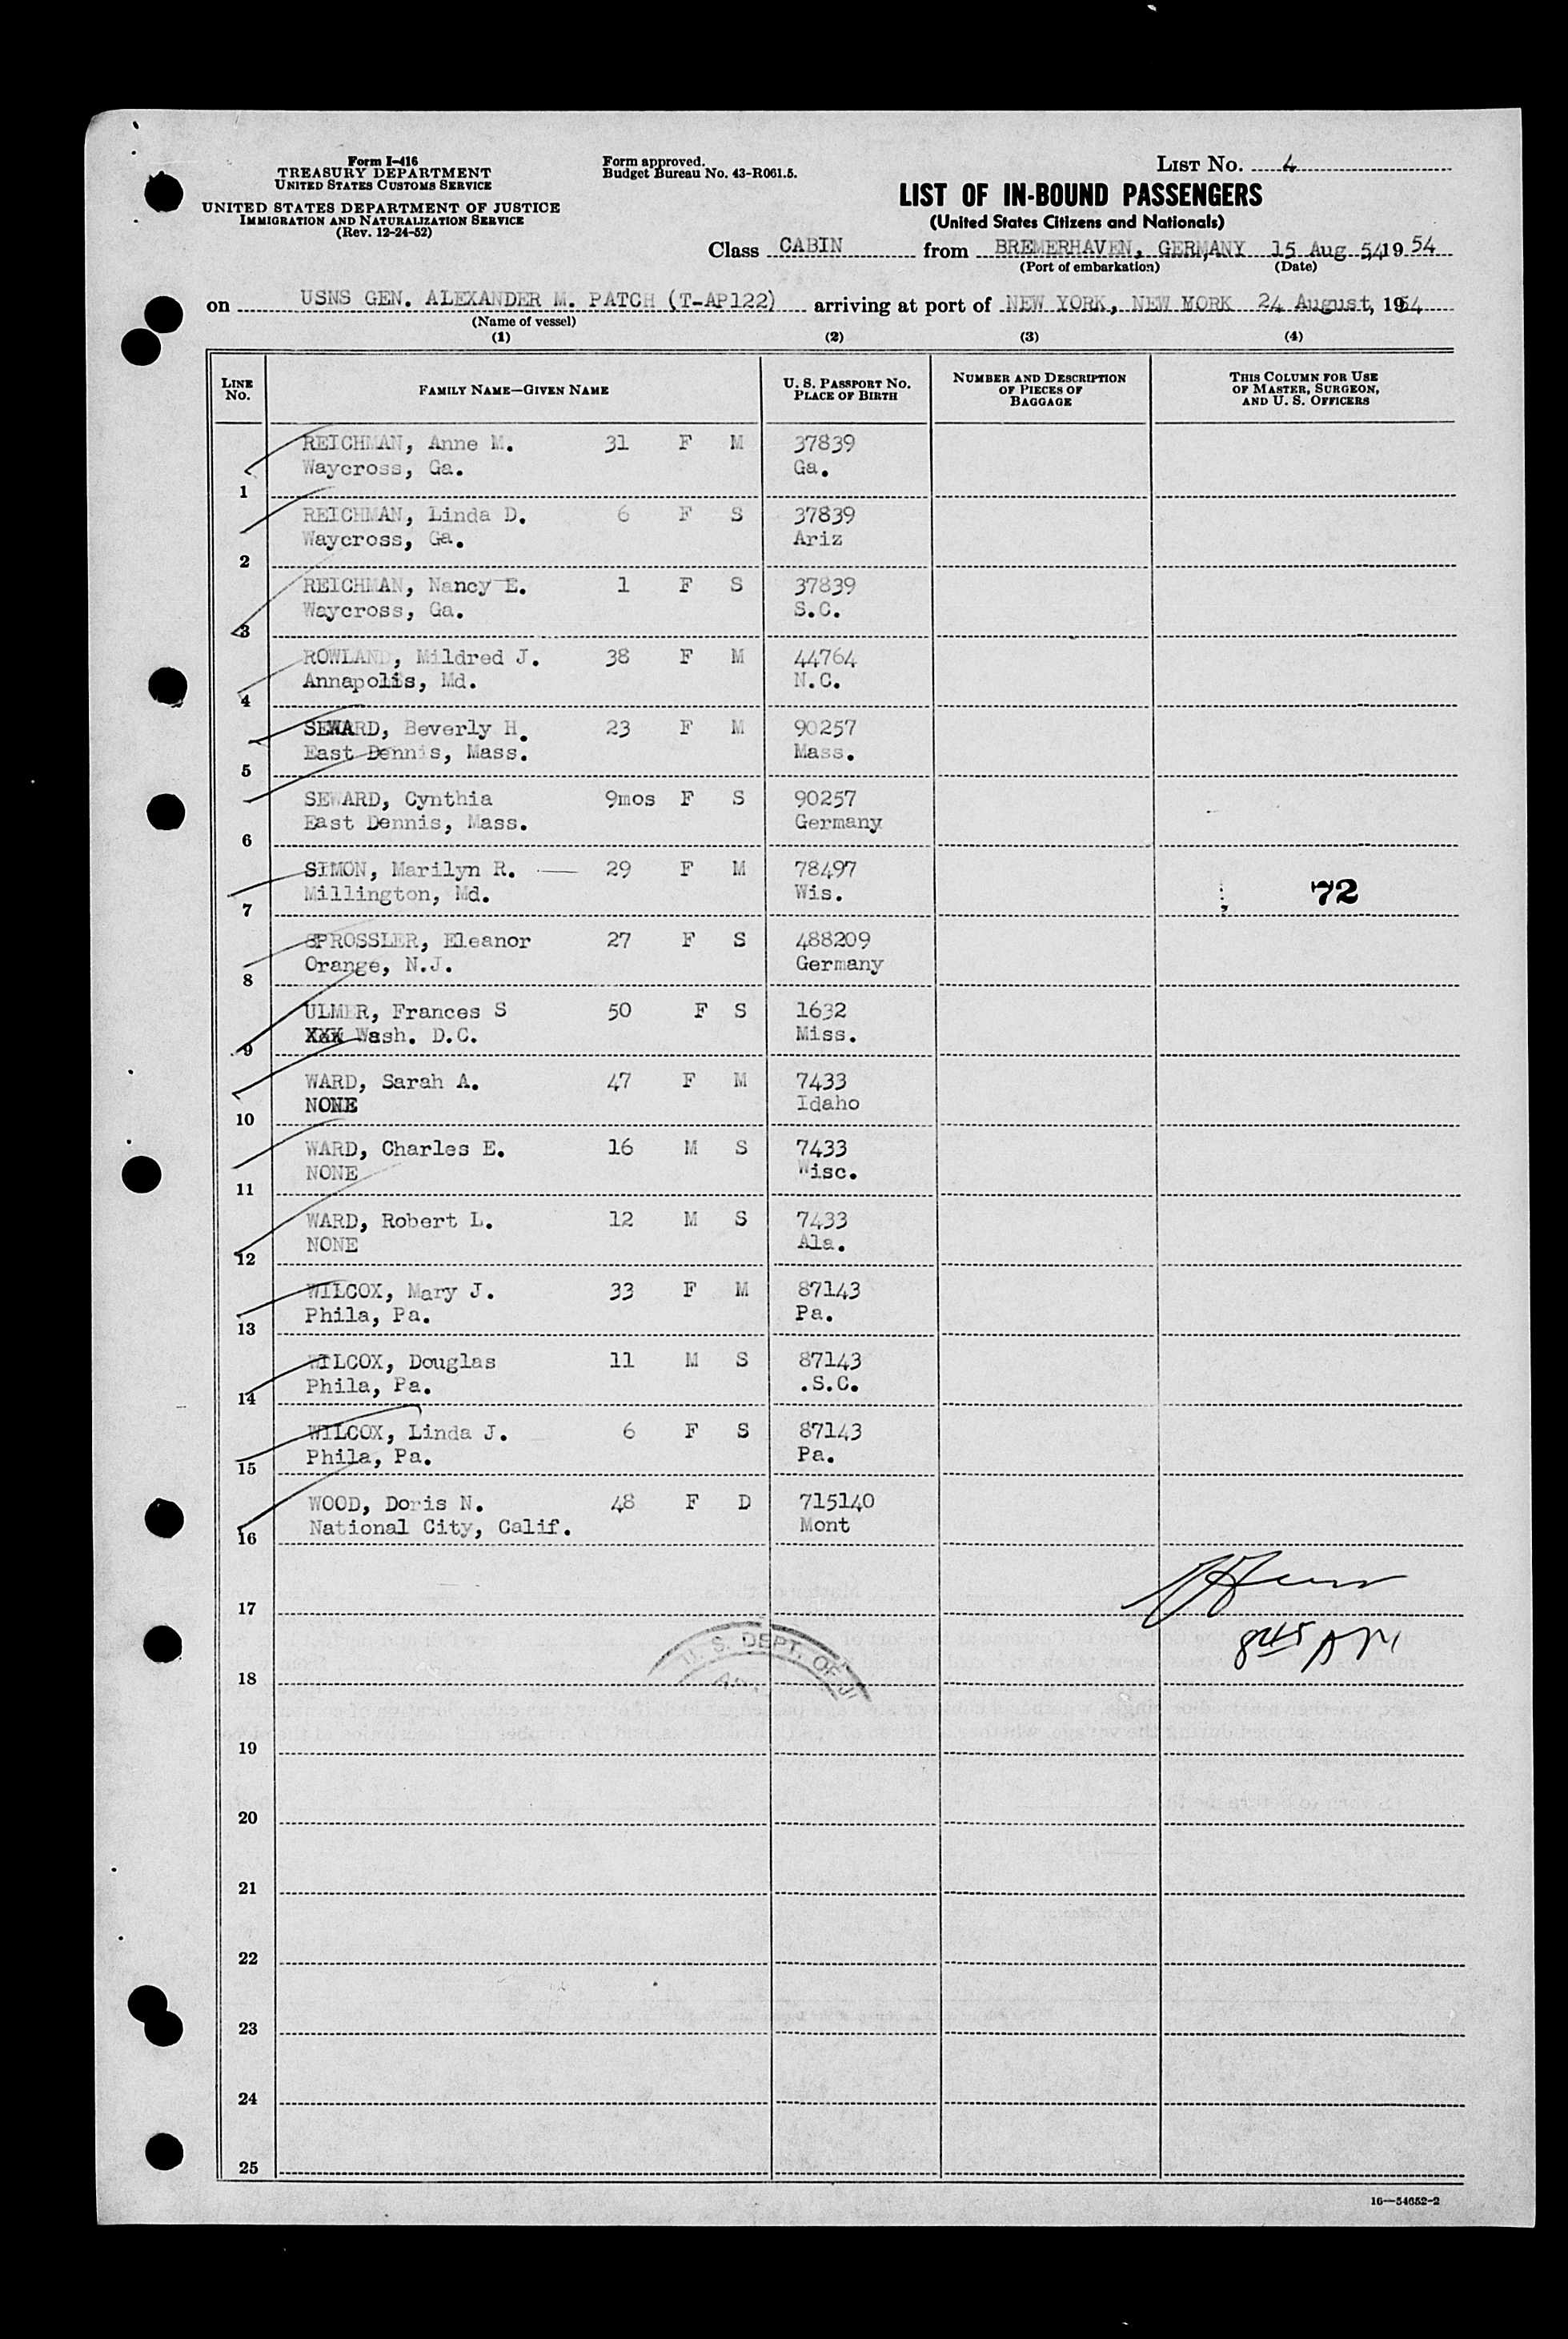 Form I-416
TREASURY DEPARTMENT
UNITED STATES CUSTOMS SERVICE
UNITED STATES DEPARTMENT OF JUSTICE
IMMIGRATION AND NATURALIZATION SERVICE
(Rev. 12-24-52)
Form approved.
Budget Bureau No. 43-R061.5.
LIST No. 4
LIST OF IN-BOUND PASSENGERS
(United States Citizens and Nationals)
Class CABIN from BREMERHAVEN, GERMANY 15 Aug 54, 19 54
(Port of embarkation) (Date)
on USNS GEN. ALEXANDER M. PATCH (T-AP122) arriving at port of NEW YORK, NEW MORK 24 August, 1954
(Name of vessel)
(1) (2) (3) (4)
LINE No. FAMILY NAME—GIVEN NAME U. S. PASSPORT No. PLACE OF BIRTH NUMBER AND DESCRIPTION OF PIECES OF BAGGAGE THIS COLUMN FOR USE OF MASTER, SURGEON, AND U. S. OFFICERS
REICHMAN, Anne M. 31 F M 37839
1 Waycross, Ga. Ga.
REICHMAN, Linda D. 6 F S 37839
2 Waycross, Ga. Ariz
REICHMAN, Nancy E. 1 F S 37839
3 Waycross, Ga. S.C.
ROWLAND, Mildred J. 38 F M 44764
4 Annapolis, Md. N.C.
SEWARD, Beverly H. 23 F M 90257
5 East Dennis, Mass. Mass.
SEWARD, Cynthia 9mos F S 90257
6 East Dennis, Mass. Germany
SIMON, Marilyn R. 29 F M 78497
7 Millington, Md. Wis. 72
SPROSSLER, Eleanor 27 F S 488209
8 Orange, N.J. Germany
ULMER, Frances S 50 F S 1632
9 XXX Wash. D.C. Miss.
WARD, Sarah A. 47 F M 7433
10 NONE Idaho
WARD, Charles E. 16 M S 7433
11 NONE Wisc.
WARD, Robert L. 12 M S 7433
12 NONE Ala.
WILCOX, Mary J. 33 F M 87143
13 Phila, Pa. Pa.
WILCOX, Douglas 11 M S 87143
14 Phila, Pa. .S.C.
WILCOX, Linda J. 6 F S 87143
15 Phila, Pa. Pa.
WOOD, Doris N. 48 F D 715140
16 National City, Calif. Mont
17
845 AM
U. S. DEPT. OF J
18
19
20
21
22
23
24
25
16—54652-2